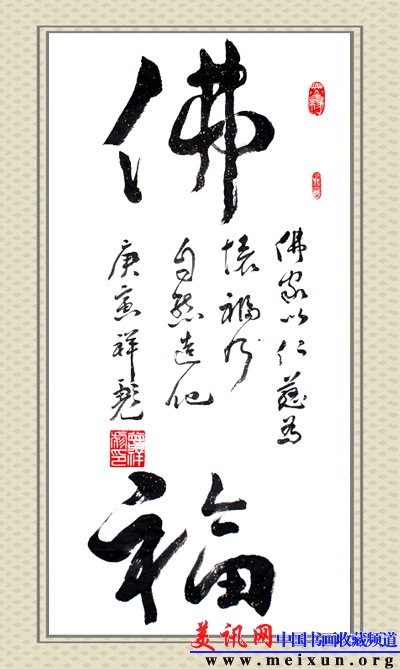 佛
佛家以仁慈為
懷福乃
自然造化
庚寅祥彪
福
美讯网 中国书画收藏频道
www.meixun.org